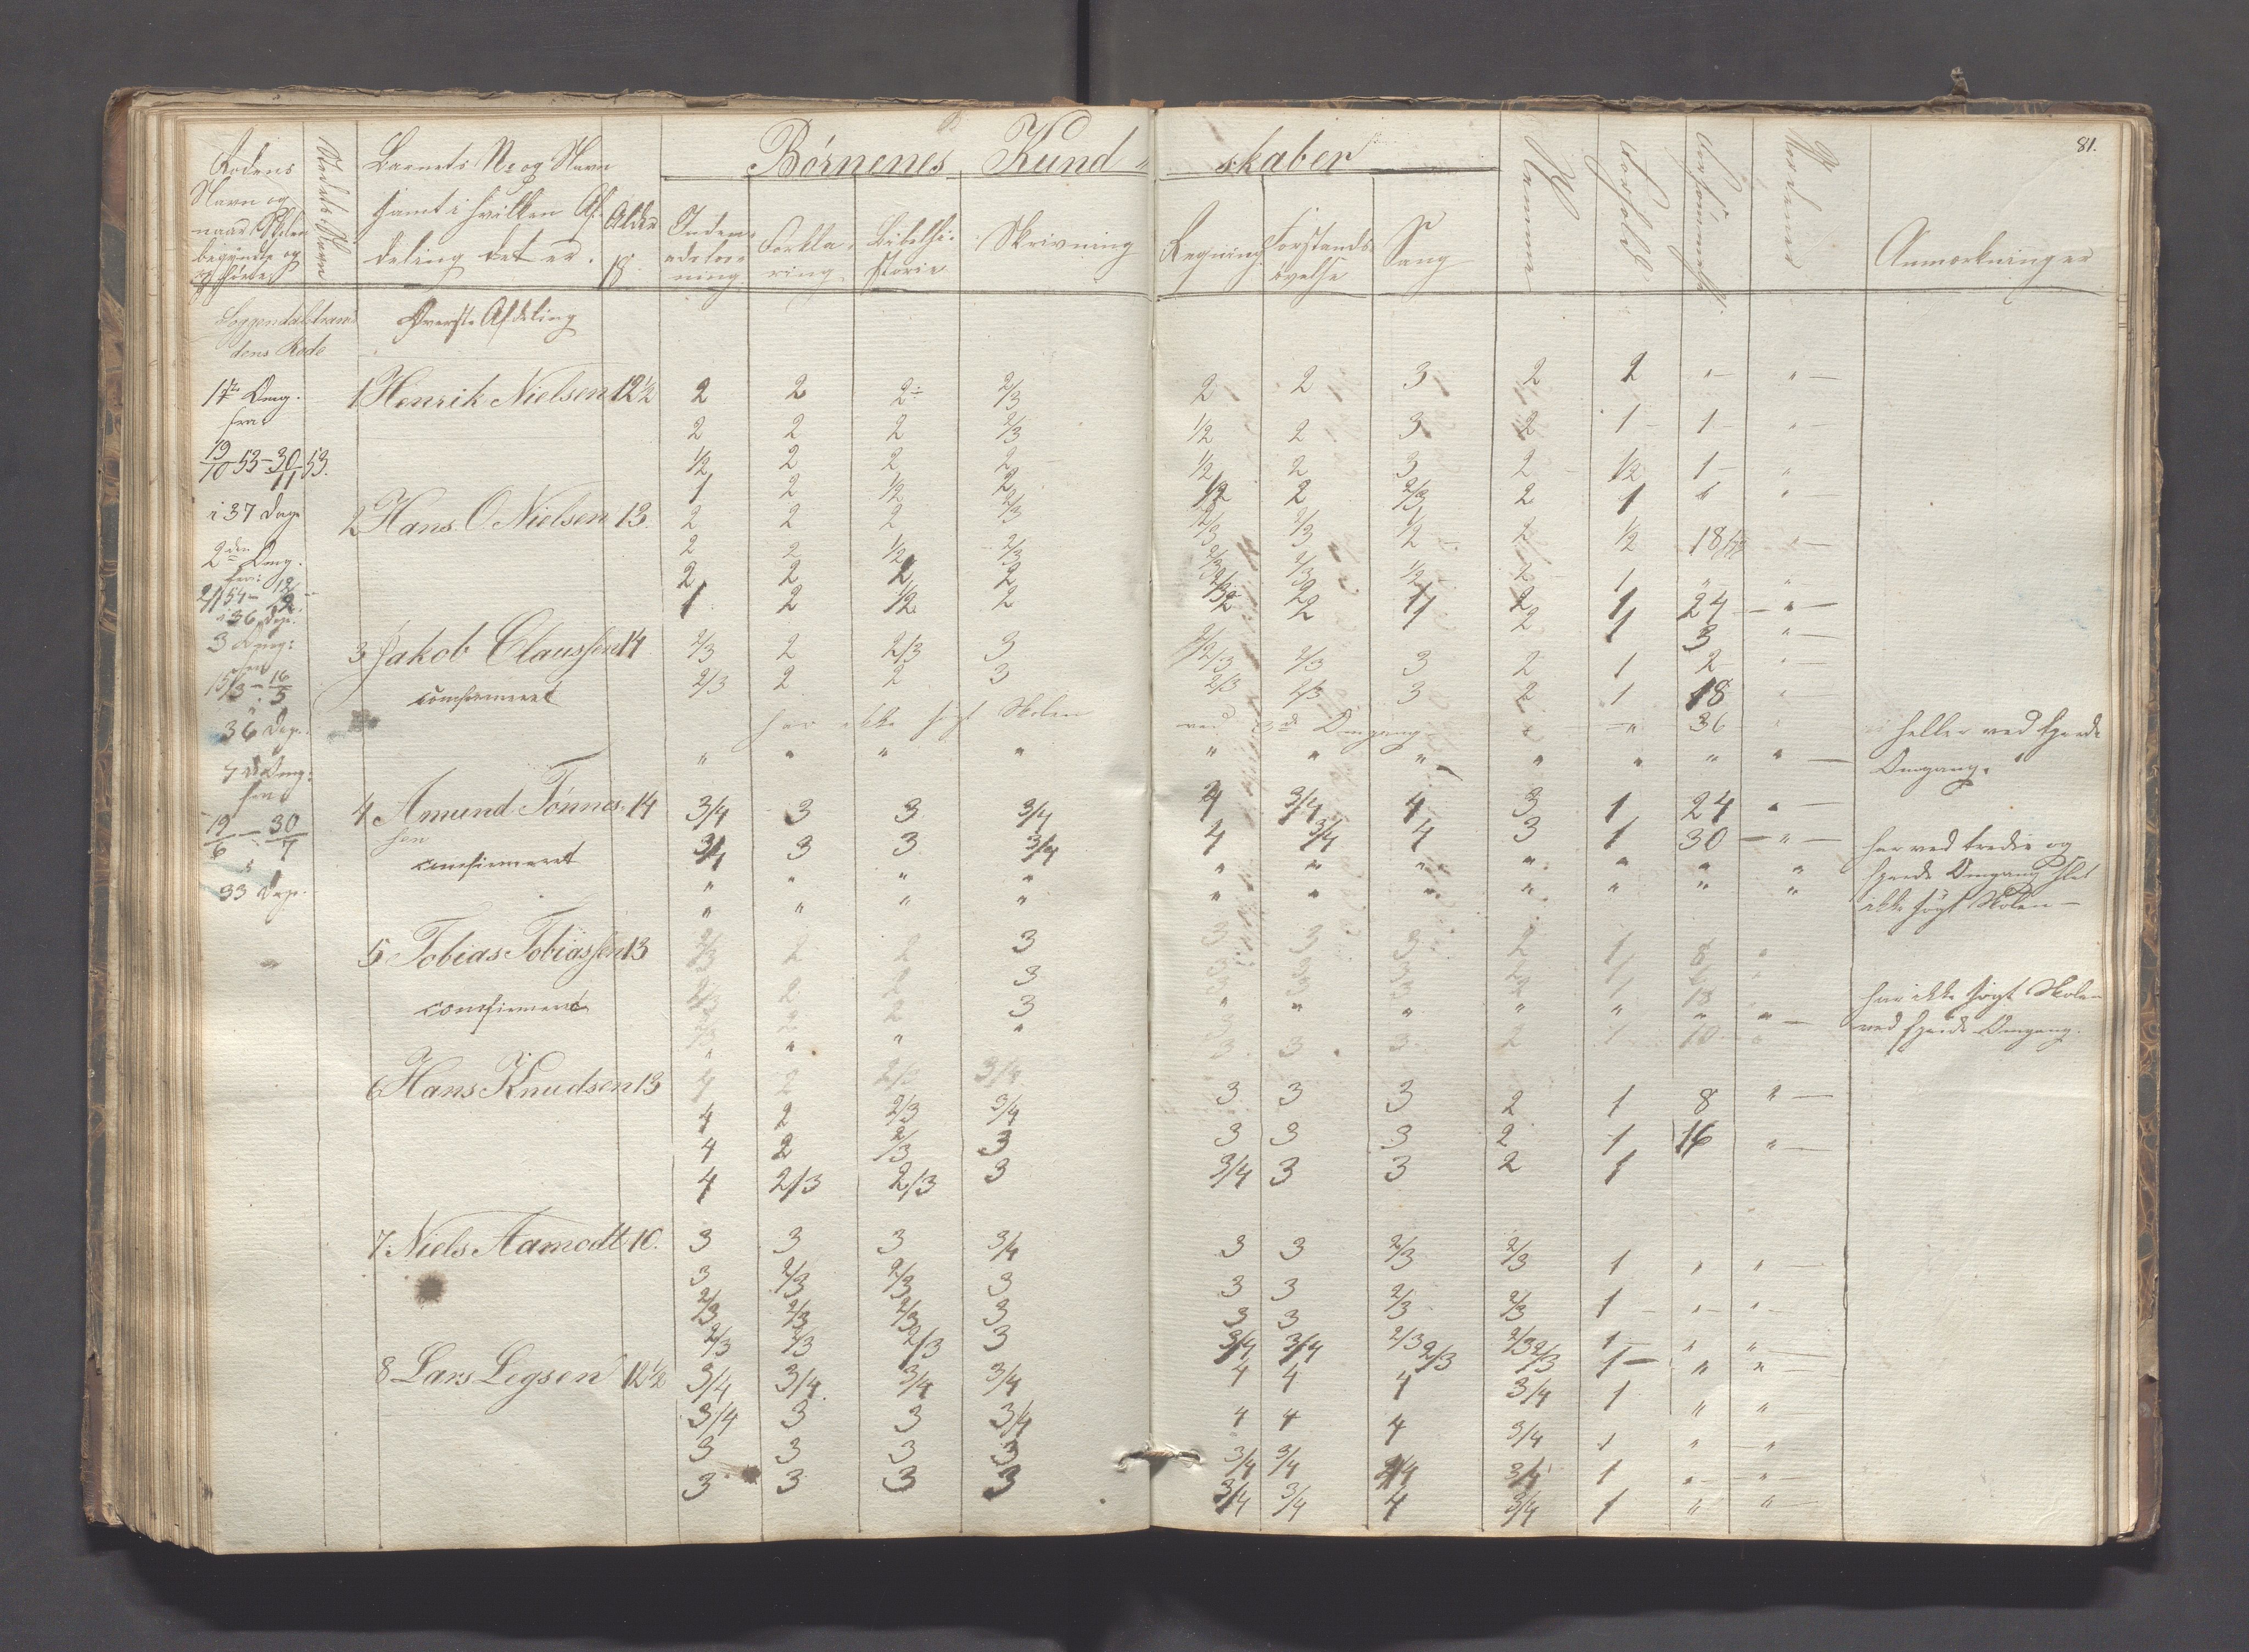 81.
Rodens
Navn og
naar Skolen
begyndte og
Stedets Navn
Barnets No og Navn
samt i hvilken Af-
deling det er.
Alder
Børnenes Kund-
skaber
Inden-
adlæs-
ning
Forkla-
ring
Bibelhi-
storie
Skrivning
Regning
Forstands-
øvelse
Sang
Nemme
Forhold
Forsømmelse
Anmærkninger
dens Rode
Øverste Afdeling
1ste Omg.
fra
19/10 53 - 30/11 53.
i 37 Dage
2den Omg.
i 36 Dage.
3 Omg:
15/3 - 16/5
36 Dage.
4de Omg:
fra
19/6 - 30/7
33 Dage.
1 Henrik Nielsen 12½ 2 2 2 2/3 2 2 3 2 2 " "
2 2 2 2/3 1/2 2 3 2 1 1 "
1/2 2 2 2 1/2 2 3 2 1/2 1 "
1 2 1/2 2 1/2 2 2/3 2 1
2 Hans O Nielsen 13. 2 2 2 2/3 2/3 2/3 1/2 2 1/2
2 2 1/2 2/3 2/3 2/3 1/2 2 1 " "
2 2 2 2 2 1 2 1 24 "
1 2 1/2 2 2 2 1 2 1 3 "
3 Jakob Claussen 14 2/3 2 2/3 3 2/3 2/3 3 2 1 2 "
confirmeret 2/3 2 2 3 2/3 2/3 3 2 1 18 "
har ikke søgt Skolen ved 3de Omgang " 36 " heller ved fjerde
" " " " " " " " " " " Omgang.
4 Amund Tønnes- 14 3/4 3 3 3/4 4 3/4 4 3 1 24 "
sen
confirmeret 3/4 3 3 3/4 4 3/4 4 3 1 30 " har ved tredie og
" " " " " " " " " " " fjerde Omgang slet
" " " " " " " " " " " ikke søgt Skolen
5 Tobias Tobiassen 13 2/3 2 2 3 3 3 3 2 1 8 "
2/3 2 2 3 3 3 3 2 1 6 "
confirmeret 2/3 2 2 3 har ikke søgt Skolen
" " " " " " " " " " " ved fjerde Omgang.
6 Hans Knudsen 13 4 2 2/3 3/4 3 3 3 2 1 10 "
4 2 2/3 3/4 3 3 3 2 1 8 "
4 2 2/3 3 3 3 3 2 1 16 "
4 2/3 2/3 3 3/4 3 3 2 1
7 Niels Aamodt 10. 3 3 3 3/4 3 3 2/3 2/3 1 " "
3 2/3 2/3 3 3 3 2/3 2/3 1 " "
2/3 2/3 2/3 3 3 3 2/3 2/3 1 " "
2/3 2/3 2/3 3 3/4 3/4 2/3 2/3 1 " "
8 Lars Legsen 12½ 3/4 3/4 3/4 3/4 4 4 4 3/4 1 " "
3/4 3 3 3/4 4 4 4 3/4 1 " "
3 3 3 3 3/4 3/4 3/4 3/4 1 " "
3 3 3 3 3/4 3/4 4 3/4 1 " "